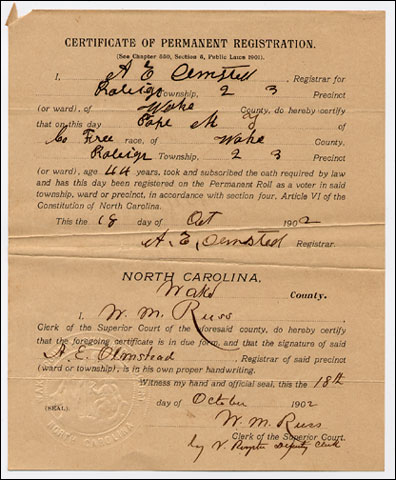 CERTIFICATE OF PERMANENT REGISTRATION.
(See Chapter 550, Section 6, Public Laws 1901.)
I, A E Olmsted, Registrar for
Raleigh Township, 2 3 Precinct
(or ward), of Wake County, do hereby certify
that on this day Pope M of
Co Free race, of Wake County.
Raleigh Township, 2 3 Precinct
(or ward), age 44 years, took and subscribed the oath required by law
and has this day been registered on the Permanent Roll as a voter in said
township, ward or precinct, in accordance with section four, Article VI of the
Constitution of North Carolina.
This the 18 day of Oct 1902
A. E. Olmsted Registrar.
NORTH CAROLINA,
Wake County.
I, W. M. Russ
Clerk of the Superior Court of the aforesaid county, do hereby certify
that the foregoing certificate is in due form, and that the signature of said
A. E. Olmstead Registrar of said precinct
(ward or township), is in his own proper handwriting.
Witness my hand and official seal, this the 18th
day of October 1902
W. M. Russ
(SEAL.) Clerk of the Superior Court.
by Deputy Clerk
NORTH CAROLINA